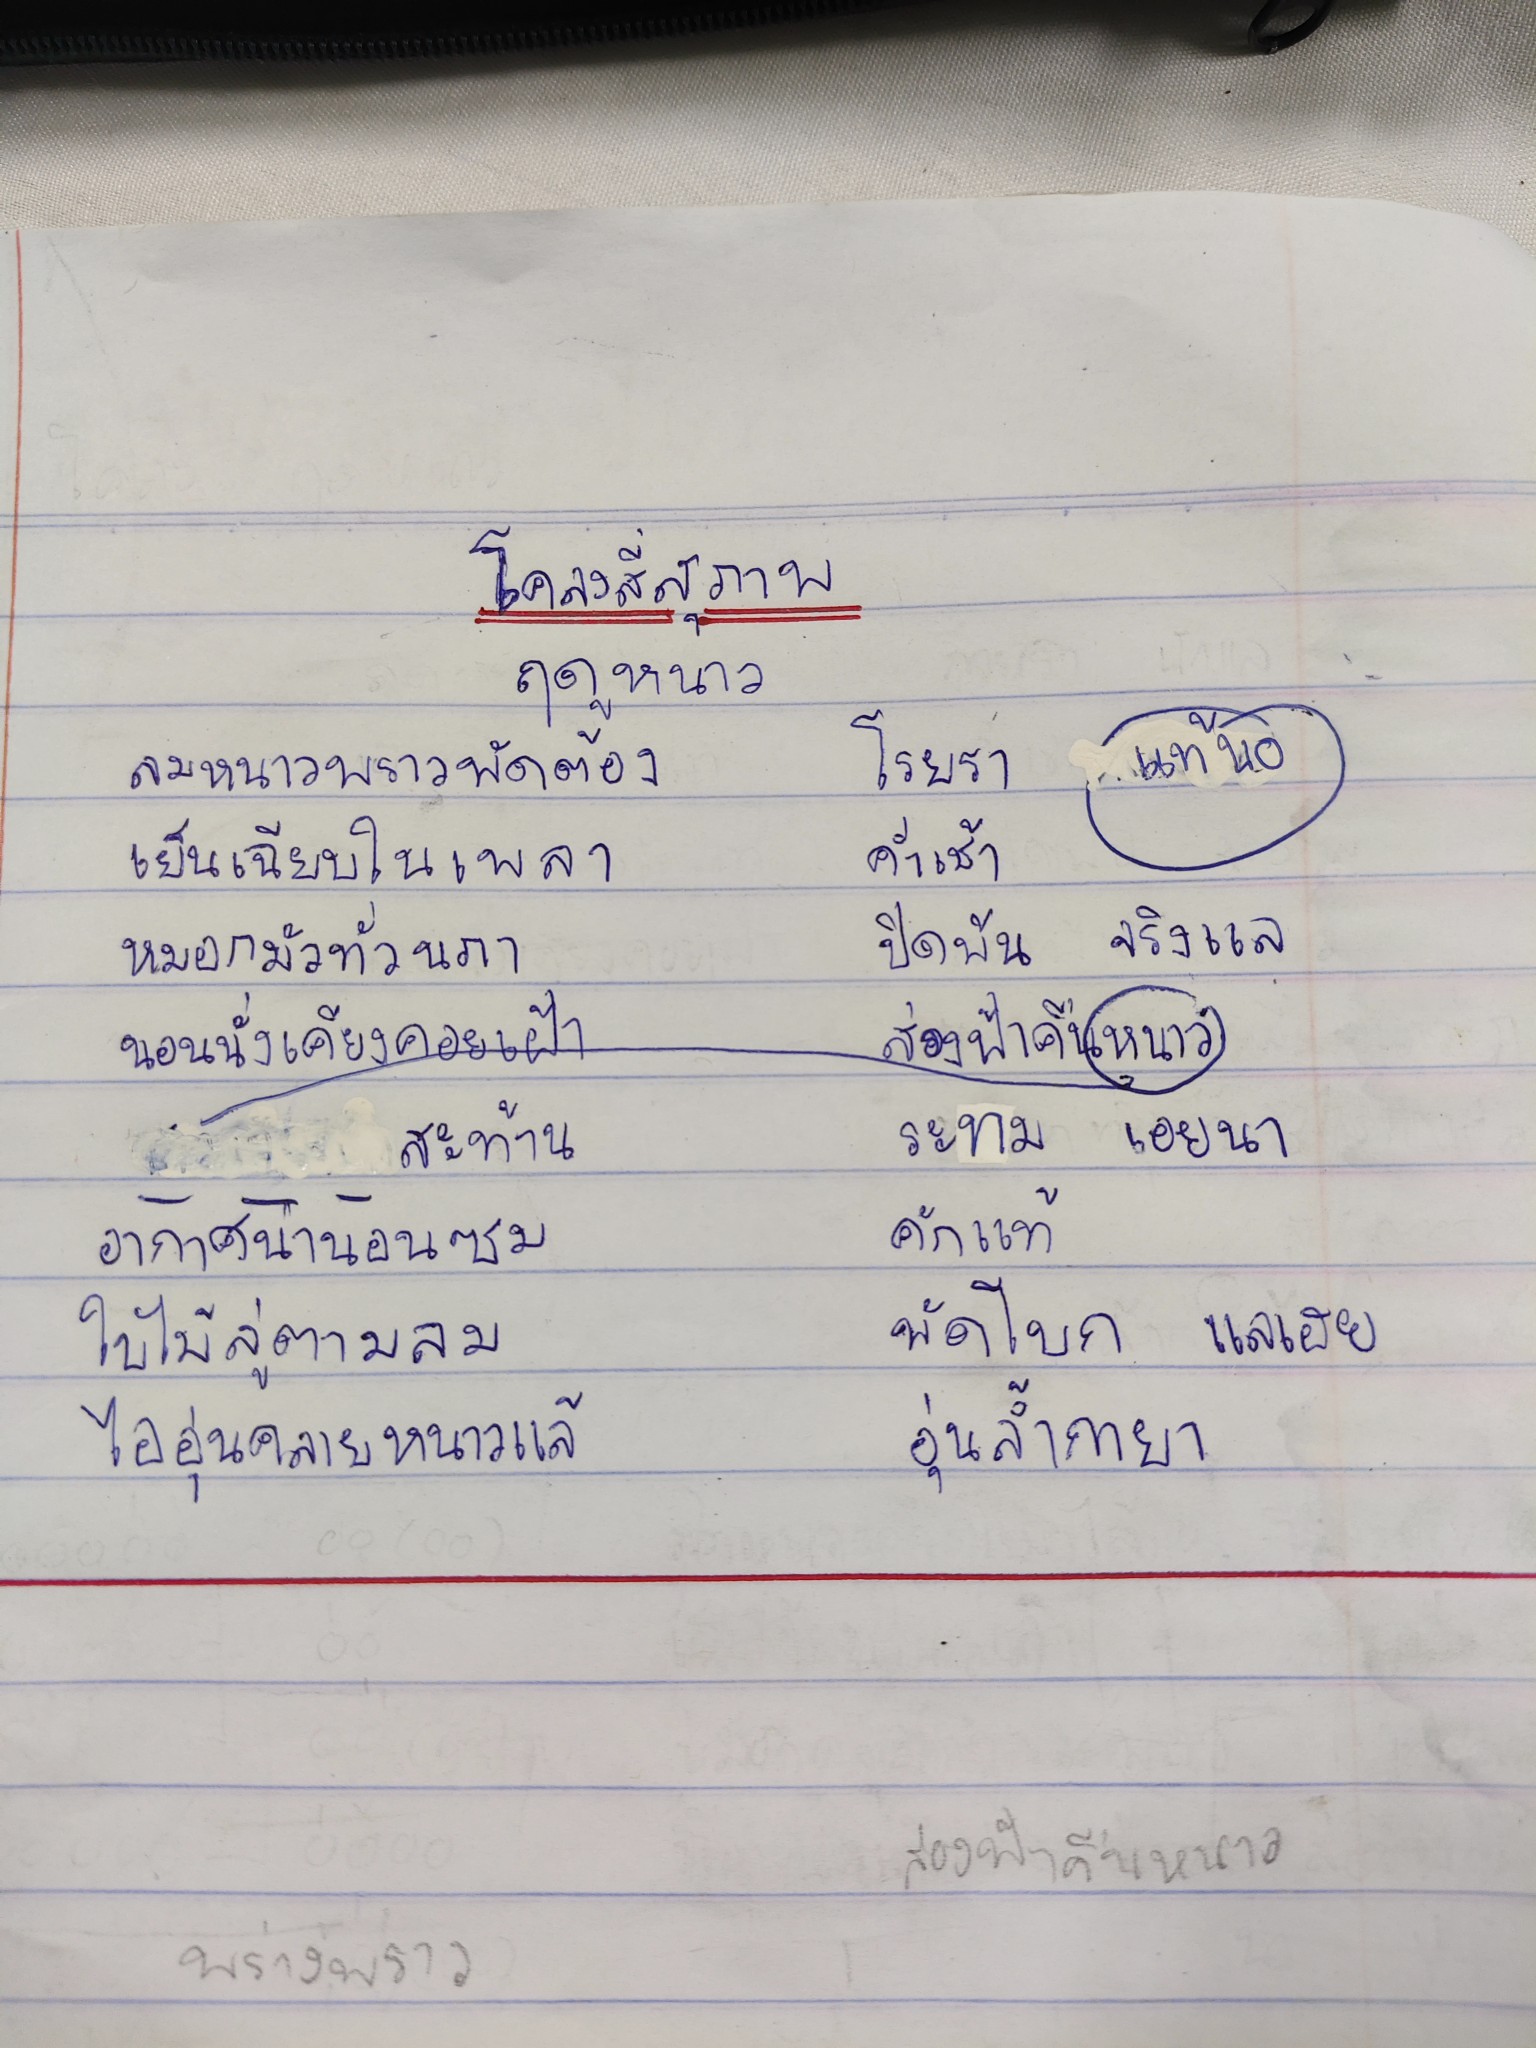 โคลงสี่สุภาพ
ฤดูหนาว
ลมหนาวพราวพัดต้อง โรยรา แท้หอ
เย็นเฉียบในเพลา ค่ำเช้า
หมอกมัวทั่วนภา ปิดพ้น จริงแล
นอนนั่งเคียงคอยเฝ้า ส่องฟ้าคืนหนาว
สะท้าน ระทม เอยนา
อากาศน่านอนซม คักแท้
ใบไม้ลู่ตามลม พัดโบก แลเฮย
ไออุ่นคลายหนาวแล้ อุ่นล้ำกายา
ส่องฟ้าคืนหนาว
พร่างพราว